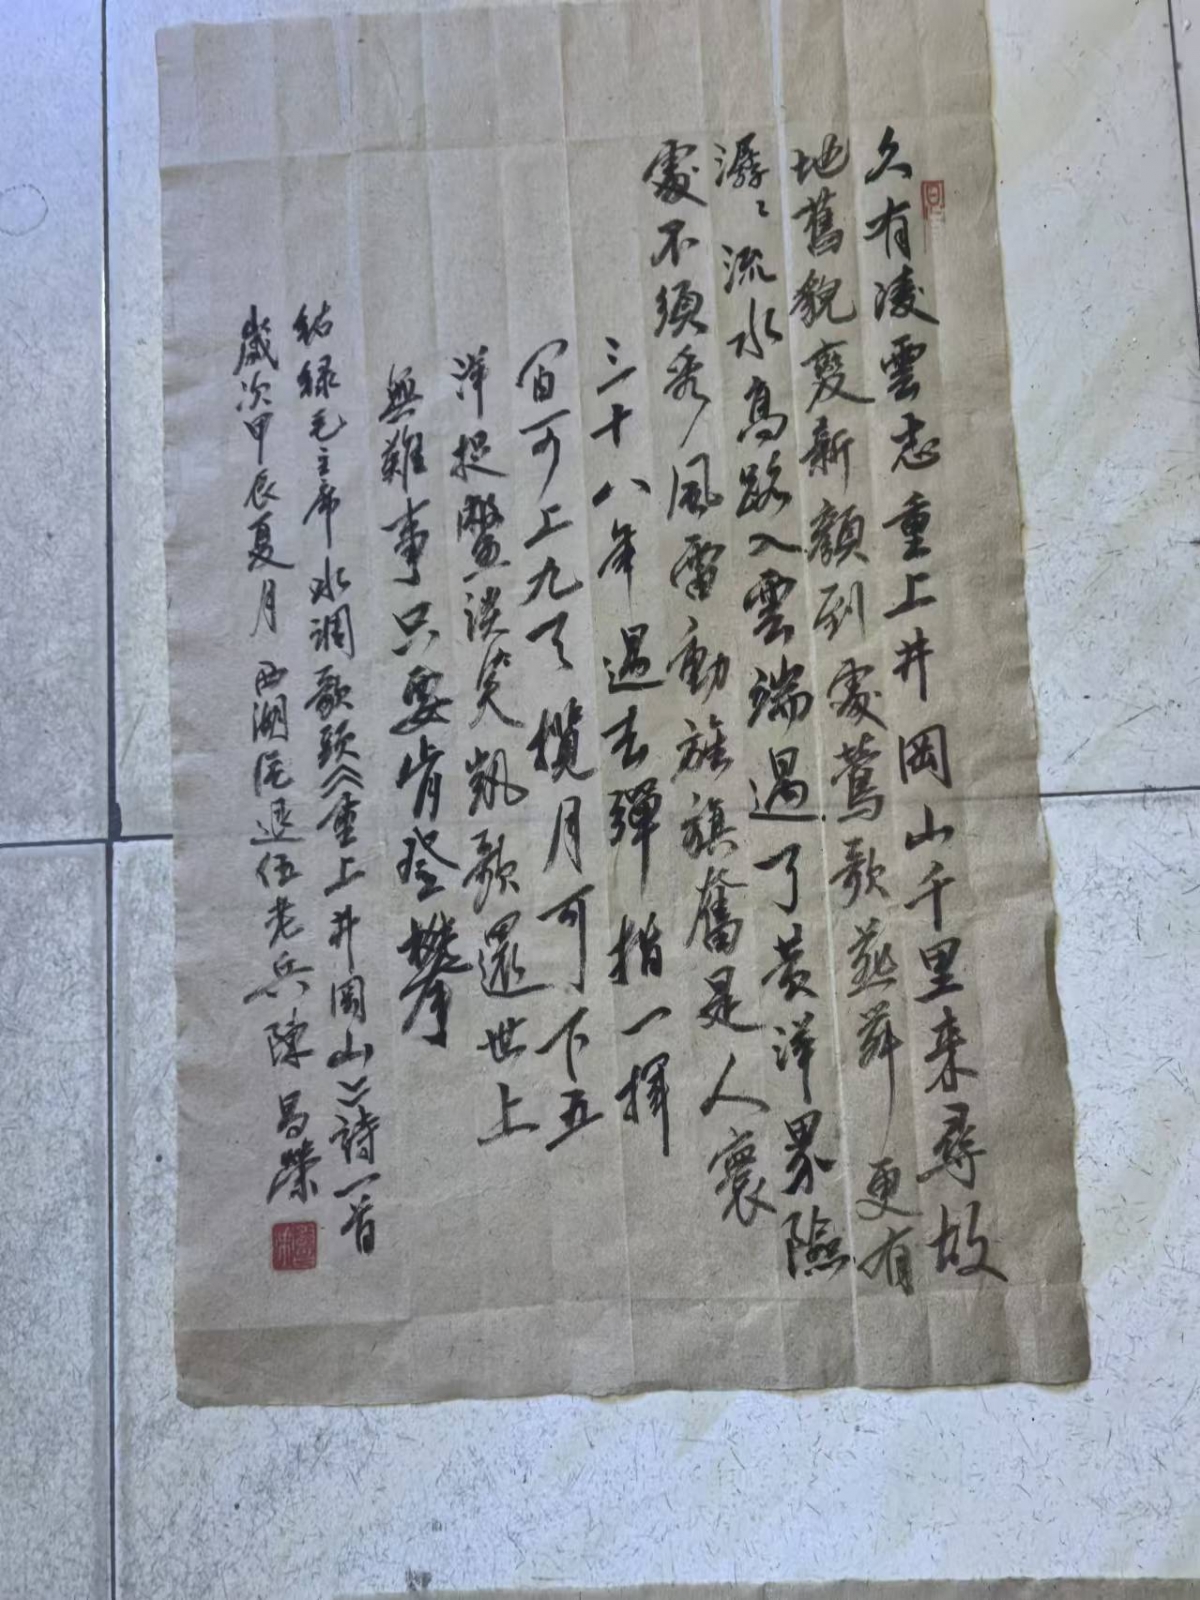 久有凌雲志重上井岡山千里来尋故
地舊貌變新顏到處鶯歌燕舞更有
潺〻流水高路入雲端過了黄洋界險
處不須看風雷動旌旗奮是人寰
三十八年過去彈指一揮
間可上九天攬月可下五
洋捉鱉談笑凱歌還世上
無難事只要肯登攀
結緣毛主席水調歌頭《重上井岡山》詩一首
歲次甲辰夏月西湖退伍老兵陳昌榮